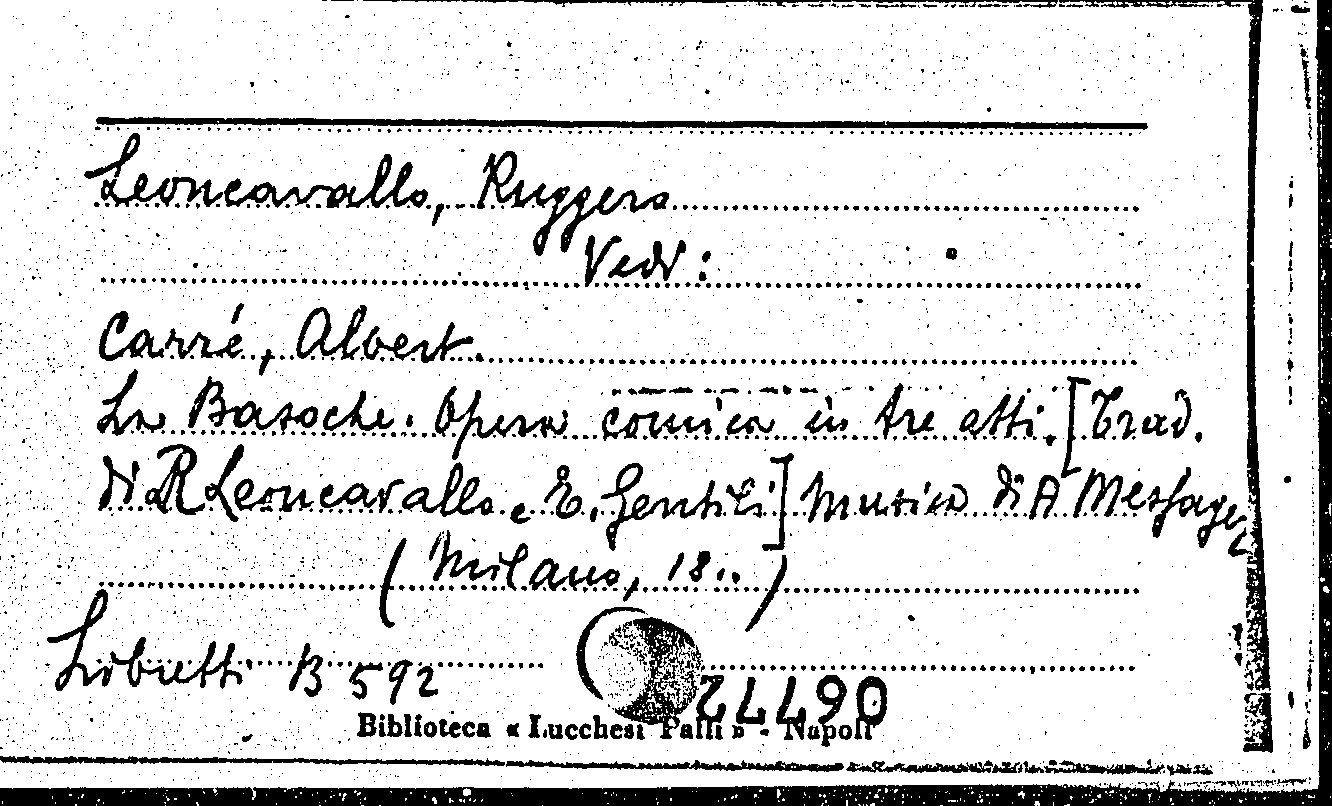 Leoncavallo, Ruggero
Vedi:
Carré, Albert.
La Basoche. Opera comica in tre atti. [Trad.
di R Leoncavallo e E. Gentili] Musica di A Messager
(Milano, 18..)
Libretti B 592
06772
Biblioteca « Lucchesi Palli » - Napoli